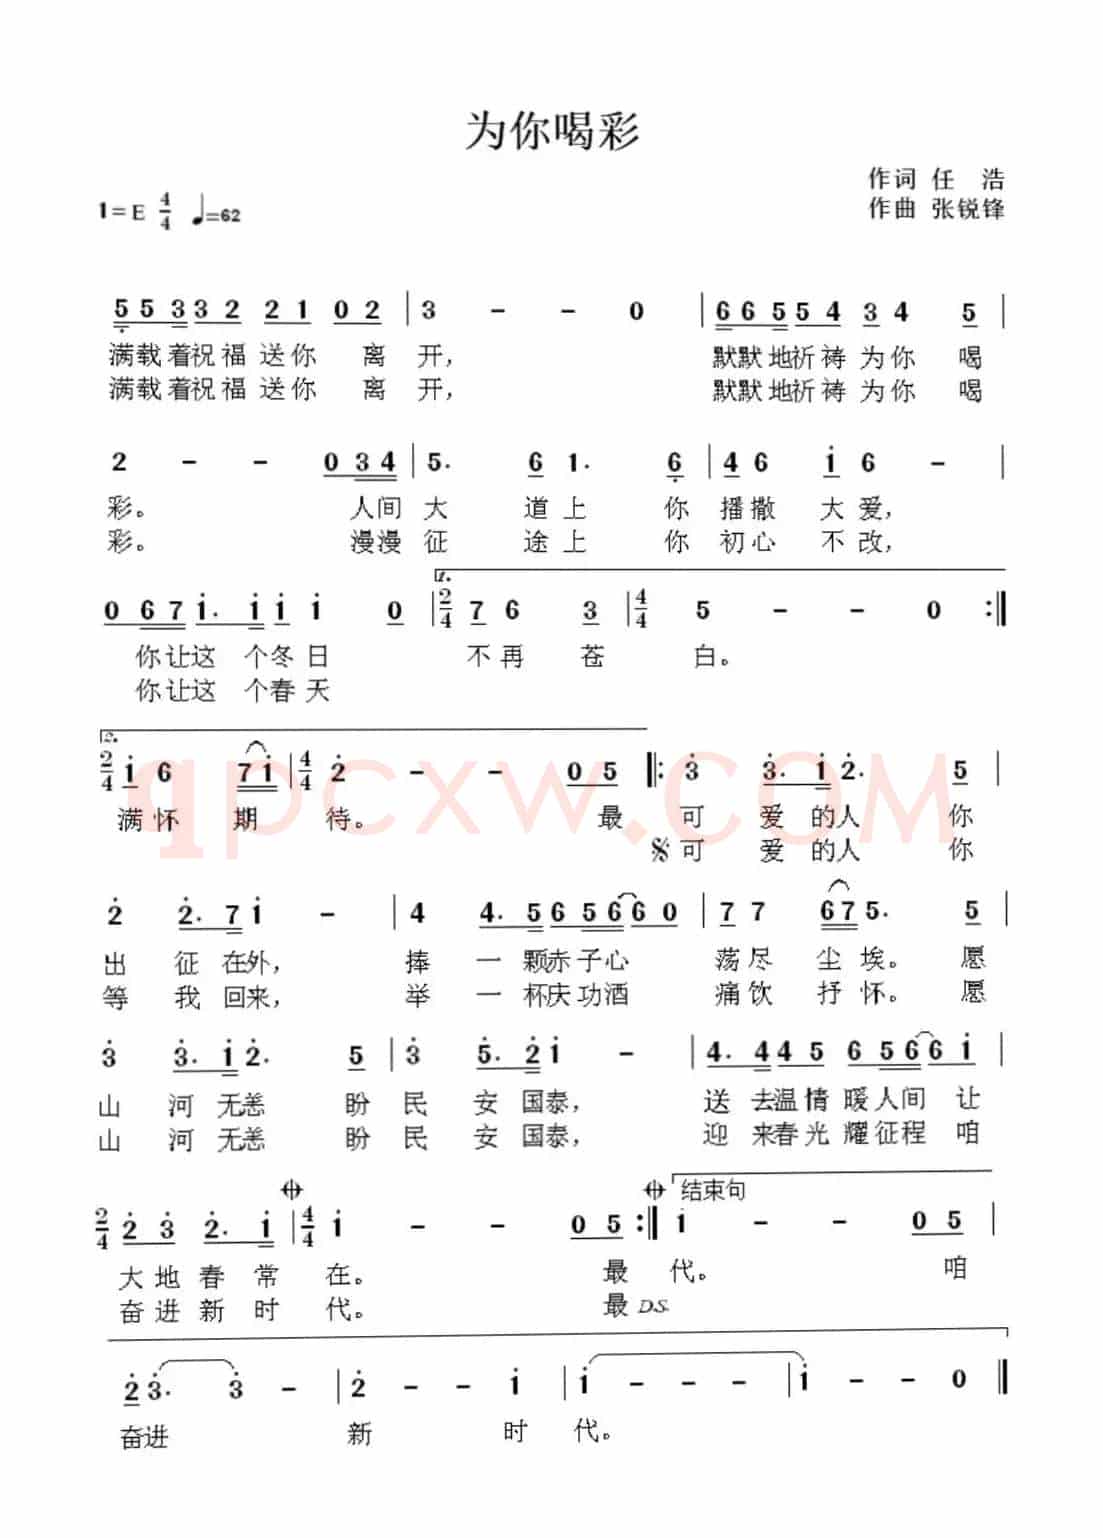 为你喝彩
作词 任 浩
1=E 4/4 ♩=62
作曲 张锐锋
5 5 3 3 2 2 1 0 2 | 3 - - 0 | 6 6 5 5 4 3 4 5 |
满载着祝福送你 离 开, 默默地祈祷为你 喝
满载着祝福送你 离 开, 默默地祈祷为你 喝
2 - - 0 3 4 | 5. 6 1. 6 | 4 6 i 6 - |
彩。 人间大 道上 你 播撒 大爱,
彩。 漫漫征 途上 你 初心 不改,
1.
0 6 7 i. i i i 0 | 2/4 7 6 3 | 4/4 5 - - 0 :||
你让这 个冬日 不再 苍 白。
你让这 个春天
2.
2/4 i 6 7 i | 4/4 2 - - 0 5 ||: 3 3. i 2. 5 |
满怀 期 待。 最 可 爱 的人 你
𝄋可 爱 的人 你
2 2. 7 i - | 4 4. 5 6 5 6 6 0 | 7 7 6 7 5. 5 |
出 征 在外, 捧 一 颗赤子心 荡尽 尘埃。 愿
等 我 回来, 举 一 杯庆功酒 痛饮 抒怀。 愿
3 3. i 2. 5 | 3 5. 2 i - | 4. 4 4 5 6 5 6 6 i |
山 河 无恙 盼 民 安 国泰, 送 去温情暖人间 让
山 河 无恙 盼 民 安 国泰, 迎 来春光耀征程 咱
结束句
2/4 2 3 2. i | 4/4 i - - 0 5 :|| i - - 0 5 |
大地春 常 在。 最 代。 咱
奋进新 时 代。 最 D.S.
2 3. 3 - | 2 - - i | i - - - | i - - 0 ||
奋进 新 时 代。
qpcxw.com